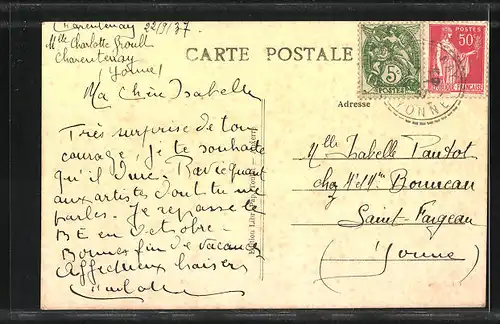 Charentenay 22/9/37
Mlle Charlotte
Charentenay
(Yonne)
CARTE POSTALE
Ma Chère Isabelle
Très surprise de ton
courage, je te souhaite
qu'il dure. Pas
aux artistes dont tu me
parles. Je repasse le
BE en octobre.
Bonnes fin de vacances
Affectueux baisers
Charlotte
Adresse
Mlle Isabelle Pautot
chez Mr et Mme Bonneau
Saint-Fargeau
(Yonne)
5c
POSTES
POSTES
50c
YONNE